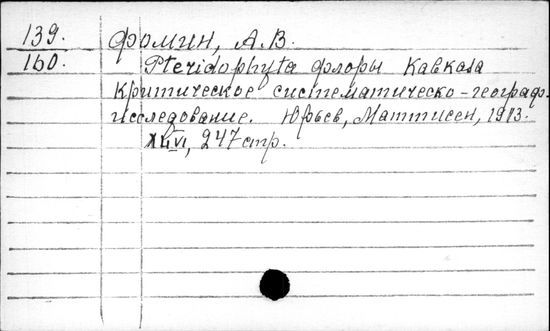 139.
160.
Фомин, А.В.
Pteridophyta флоры Кавказа
Критическое систематическо-географ.
исследование. Юрьев, Маттисен, 1913.
247 стр.